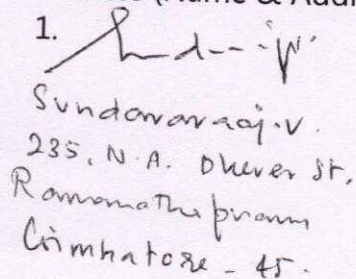 (Name & Addr
1.
Sundararaaj.V.
235, N.A. Dhever St,
Ramanathapuram
Coimbatore - 45.